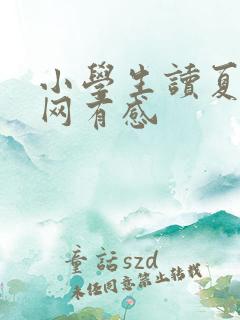 小學生讀夏
网有感
童話szd
未经同意禁止转载